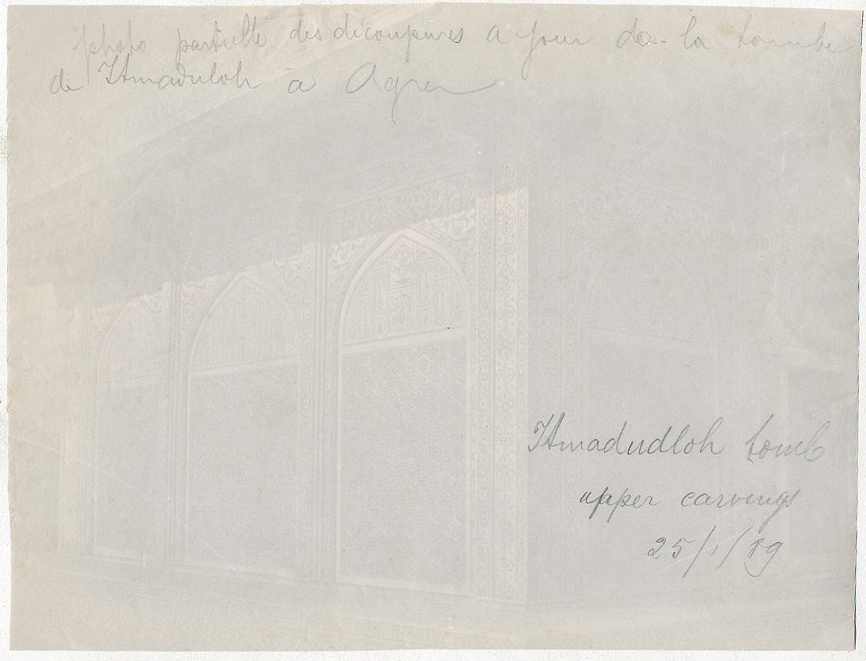 photo partielle des découpures a jour de la tombe
de Itmaduloh à Agra
Itmadudloh tomb
upper carvings
25/1/19